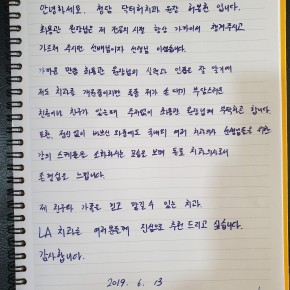 안녕하세요. 청담 닥터허치과 원장 허봉천 입니다.
최용관 원장님은 제 전공의 시절 항상 가까이서 챙겨주시고
가르쳐 주시던 선배님이자 선생님 이셨습니다.
가까운 만큼 최용관 원장님의 실력과 인품은 잘 알기에
저도 치과를 개원했지만 종종 제가 손 대기 부담스러운
친척이나 친구가 있는데 주저없이 최용관 원장님께 부탁하곤 합니다.
또한, 정신 없이 바쁘신 와중에도 국내외 여러 치과의사 선생님들을 위한
강의 스케줄을 소화하시는 모습을 보며 동료 치과의사로서
존경심을 느낍니다.
제 친구와 가족을 믿고 맡길 수 있는 치과.
LA 치과를 여러분들께 진심으로 추천 드리고 싶습니다.
감사합니다.
2019. 6. 13